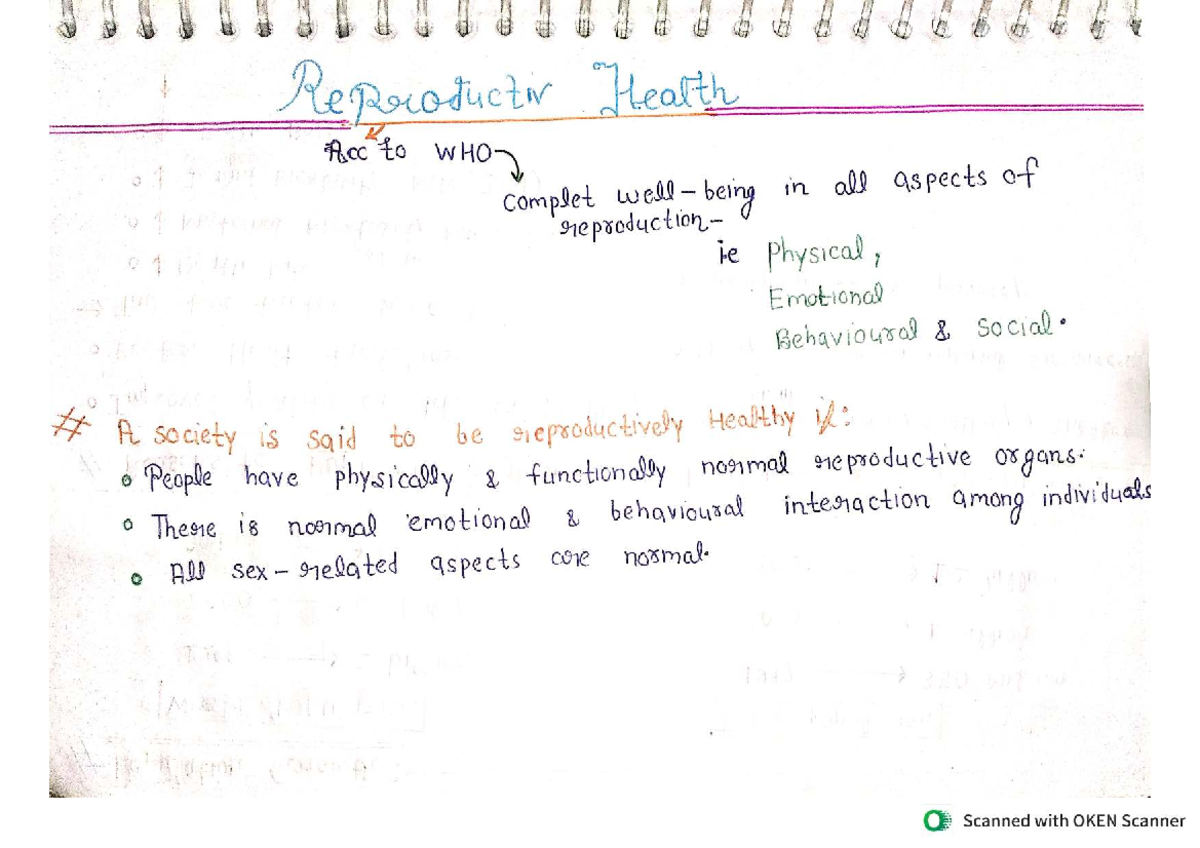 Reproductiv Health
Acc to WHO
Complet well-being in all aspects of
reproduction-
i.e Physical,
Emotional
Behavioural & Social.
# A society is said to be reproductively Healthy if:
People have physically & functionally normal reproductive organs.
There is normal emotional & behavioural interaction among individuals
All sex-related aspects are normal.
Scanned with OKEN Scanner